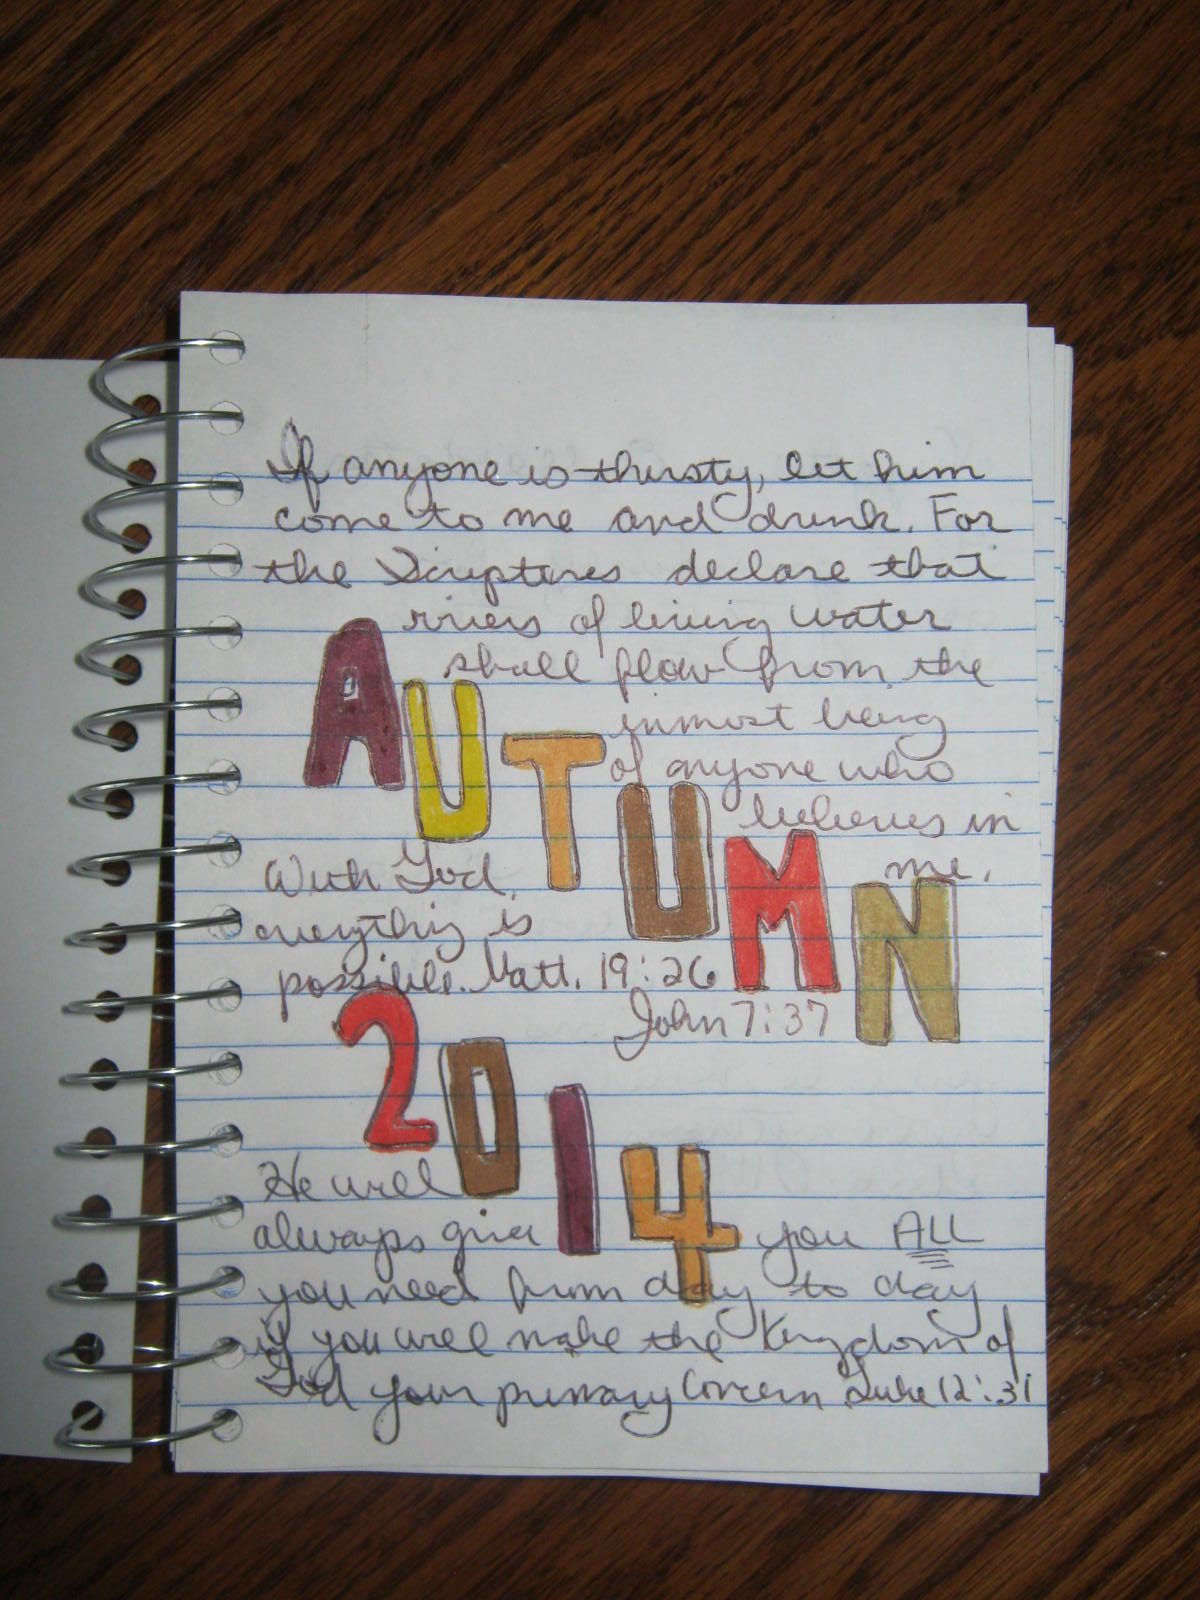 If anyone is thirsty, let him
come to me and drink. For
the Scriptures declare that
rivers of living water
shall flow from the
inmost being
of anyone who
believes in
me.
AUTUMN
With God,
everything is
possible. Matt. 19:26
John 7:37
2014
He will
always give you ALL
you need from day to day
if you will make the Kingdom of
God your primary concern Luke 12:31